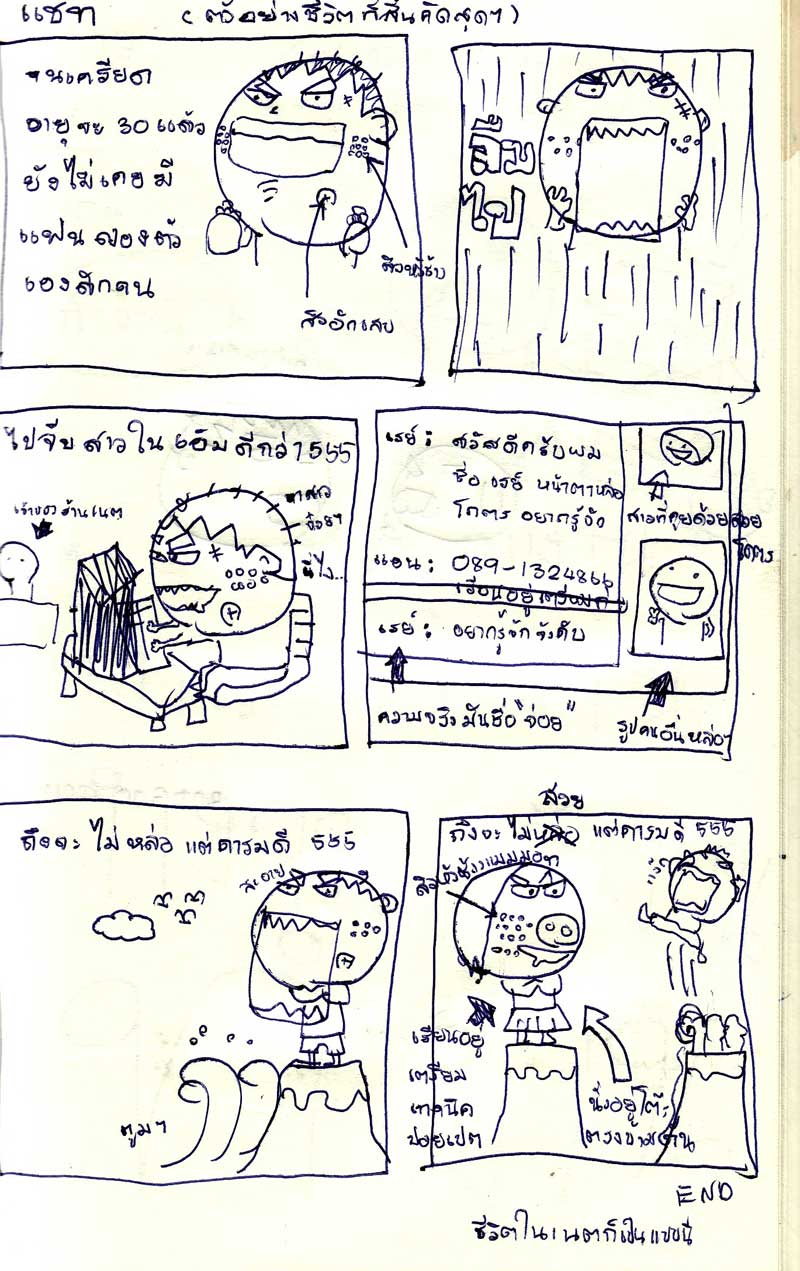 แชท (ตัวอย่างชีวิตที่สิ้นคิดสุดๆ)
จนเครียด
อายุจะ 30 แล้ว
ยังไม่เคยมี
แฟนของตัว
เองสักคน
สิวหัวช้าง
สิวอักเสบ
ไป
ไปจีบสาวในเอ็มดีกว่า 555
เจ้าของร้านเนต
หาสาว
นี่ไง...
เรย์ : สวัสดีครับผม
ชื่อ เรย์ หน้าตาหล่อ
โคตร อยากรู้จัง
แอน : 089-1324866
เรย์ : อยากรู้จักจังคับ
สาวที่คุยด้วยสวย
โคตร
ความจริงมันชื่อ "จ่อย"
รูปคนอื่นหล่อๆ
ถึงจะไม่หล่อ แต่คารมดี 555
ตูมๆ
สวย
ถึงจะไม่หล่อ แต่คารมดี 555
เรียนอยู่
เตรียม
เทคนิค
ปอยเปต
นั่งอยู่โต๊ะ
ตรงข้ามกัน
END
ชีวิตในเนตก็เป็นแบบนี้